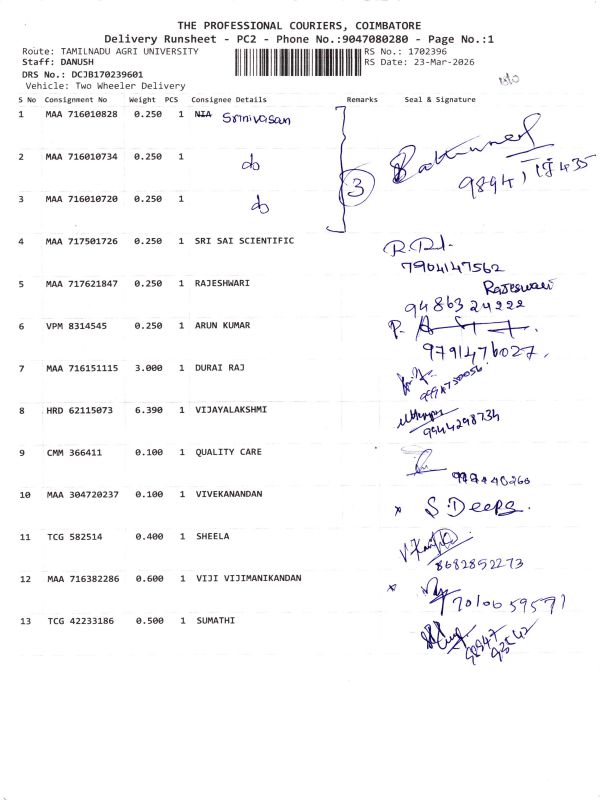 THE PROFESSIONAL COURIERS, COIMBATORE
Delivery Runsheet - PC2 - Phone No.:9047080280 - Page No.:1
Route: TAMILNADU AGRI UNIVERSITY
RS No.: 1702396
Staff: DANUSH
RS Date: 23-Mar-2026
DRS No.: DCJB170239601
Vehicle: Two Wheeler Delivery
S No Consignment No Weight PCS Consignee Details Remarks Seal & Signature
1 MAA 716010828 0.250 1 NIA Srinivasan
2 MAA 716010734 0.250 1 do
3 MAA 716010720 0.250 1 do
3
4 MAA 717501726 0.250 1 SRI SAI SCIENTIFIC
7904147562
5 MAA 717621847 0.250 1 RAJESHWARI Rajeswari
9486324222
6 VPM 8314545 0.250 1 ARUN KUMAR
9791476027.
7 MAA 716151115 3.000 1 DURAI RAJ
8 HRD 62115073 6.390 1 VIJAYALAKSHMI
9944298734
9 CMM 366411 0.100 1 QUALITY CARE
10 MAA 304720237 0.100 1 VIVEKANANDAN x S.Deepa.
11 TCG 582514 0.400 1 SHEELA
8682852273
12 MAA 716382286 0.600 1 VIJI VIJIMANIKANDAN x
7010659571
13 TCG 42233186 0.500 1 SUMATHI